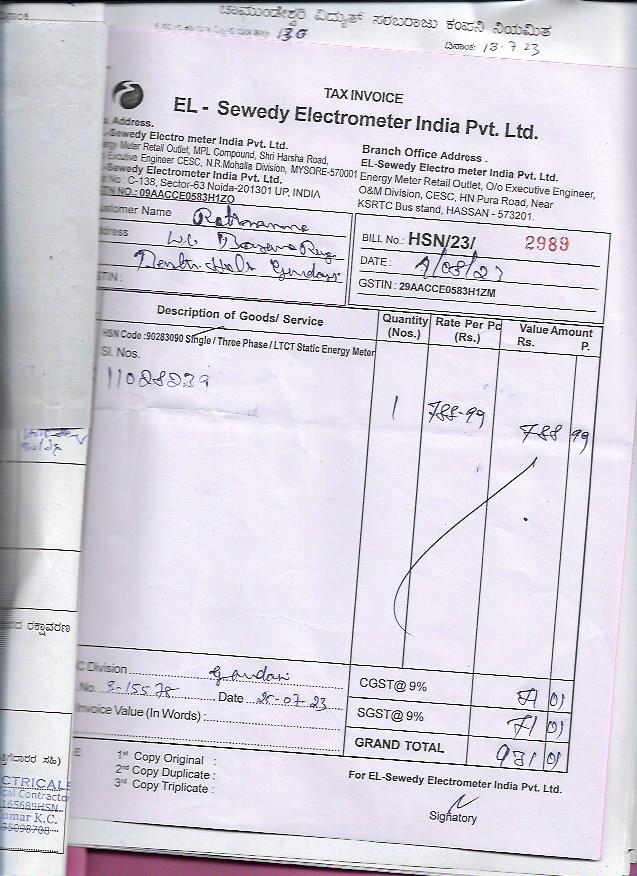 ಚಾಮುಂಡೇಶ್ವರಿ ವಿದ್ಯುತ್ ಸರಬರಾಜು ಕಂಪನಿ ನಿಯಮಿತ
130
ದಿನಾಂಕ: 18-7-23
TAX INVOICE
EL - Sewedy Electrometer India Pvt. Ltd.
Address.
-Sewedy Electro meter India Pvt. Ltd.
Meter Retail Outlet, MPL Compound, Shri Harsha Road,
Engineer CESC, N.R.Mohalla Division, MYSORE-570001
-Sewedy Electrometer India Pvt. Ltd.
No : C-138, Sector-63 Noida-201301 UP, INDIA
TN NO.: 09AACCE0583H1ZO
Branch Office Address .
EL-Sewedy Electro meter India Pvt. Ltd.
Energy Meter Retail Outlet, O/o Executive Engineer,
O&M Division, CESC, HN Pura Road, Near
KSRTC Bus stand, HASSAN - 573201.
stomer Name
dress
STIN :
BILL No.: HSN/23/ 2989
DATE :
GSTIN : 29AACCE0583H1ZM
Description of Goods/ Service
Quantity (Nos.)
Rate Per Pc (Rs.)
Value Amount
Rs. P.
HSN Code :90283090 Single / Three Phase / LTCT Static Energy Meter
Sl. Nos.
11028239
1 788-99 788 99
C Division
No. Date 25-07-23
Invoice Value (In Words) :
CGST@ 9% 71 01
SGST@ 9% 71 01
GRAND TOTAL 931 01
1st Copy Original :
2nd Copy Duplicate :
3rd Copy Triplicate :
For EL-Sewedy Electrometer India Pvt. Ltd.
Signatory
ರಕ್ಷಾವರಣ
CTRICAL
cal Contractor
165689HSN
umar K.C.
35098708